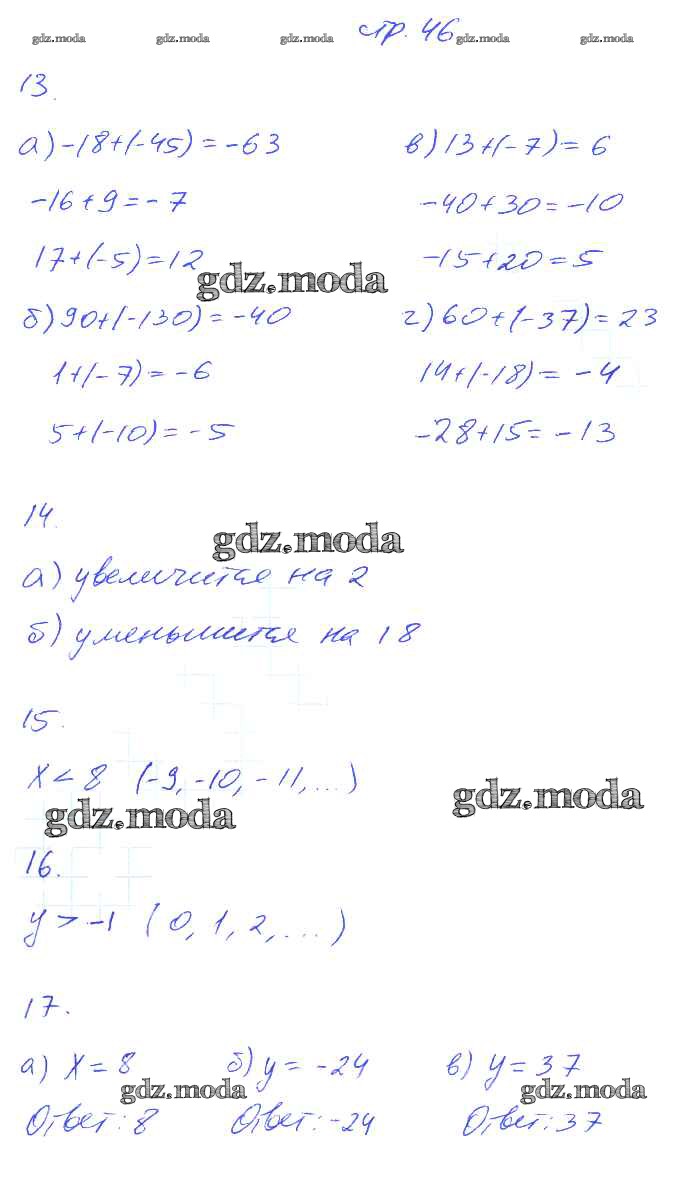 стр. 46
gdz.moda gdz.moda gdz.moda gdz.moda gdz.moda
13.
а) -18+(-45) = -63
-16+9 = -7
17+(-5) = 12
в) 13+(-7) = 6
-40+30 = -10
-15+20 = 5
gdz.moda
б) 90+(-130) = -40
1+(-7) = -6
5+(-10) = -5
г) 60+(-37) = 23
14+(-18) = -4
-28+15 = -13
14.
gdz.moda
а) увеличится на 2
б) уменьшится на 18
15.
x < 8 (-9, -10, -11, ...)
gdz.moda gdz.moda
16.
y > -1 (0, 1, 2, ...)
17.
а) x = 8 б) y = -24 в) y = 37
gdz.moda gdz.moda
Ответ: 8 Ответ: -24 Ответ: 37